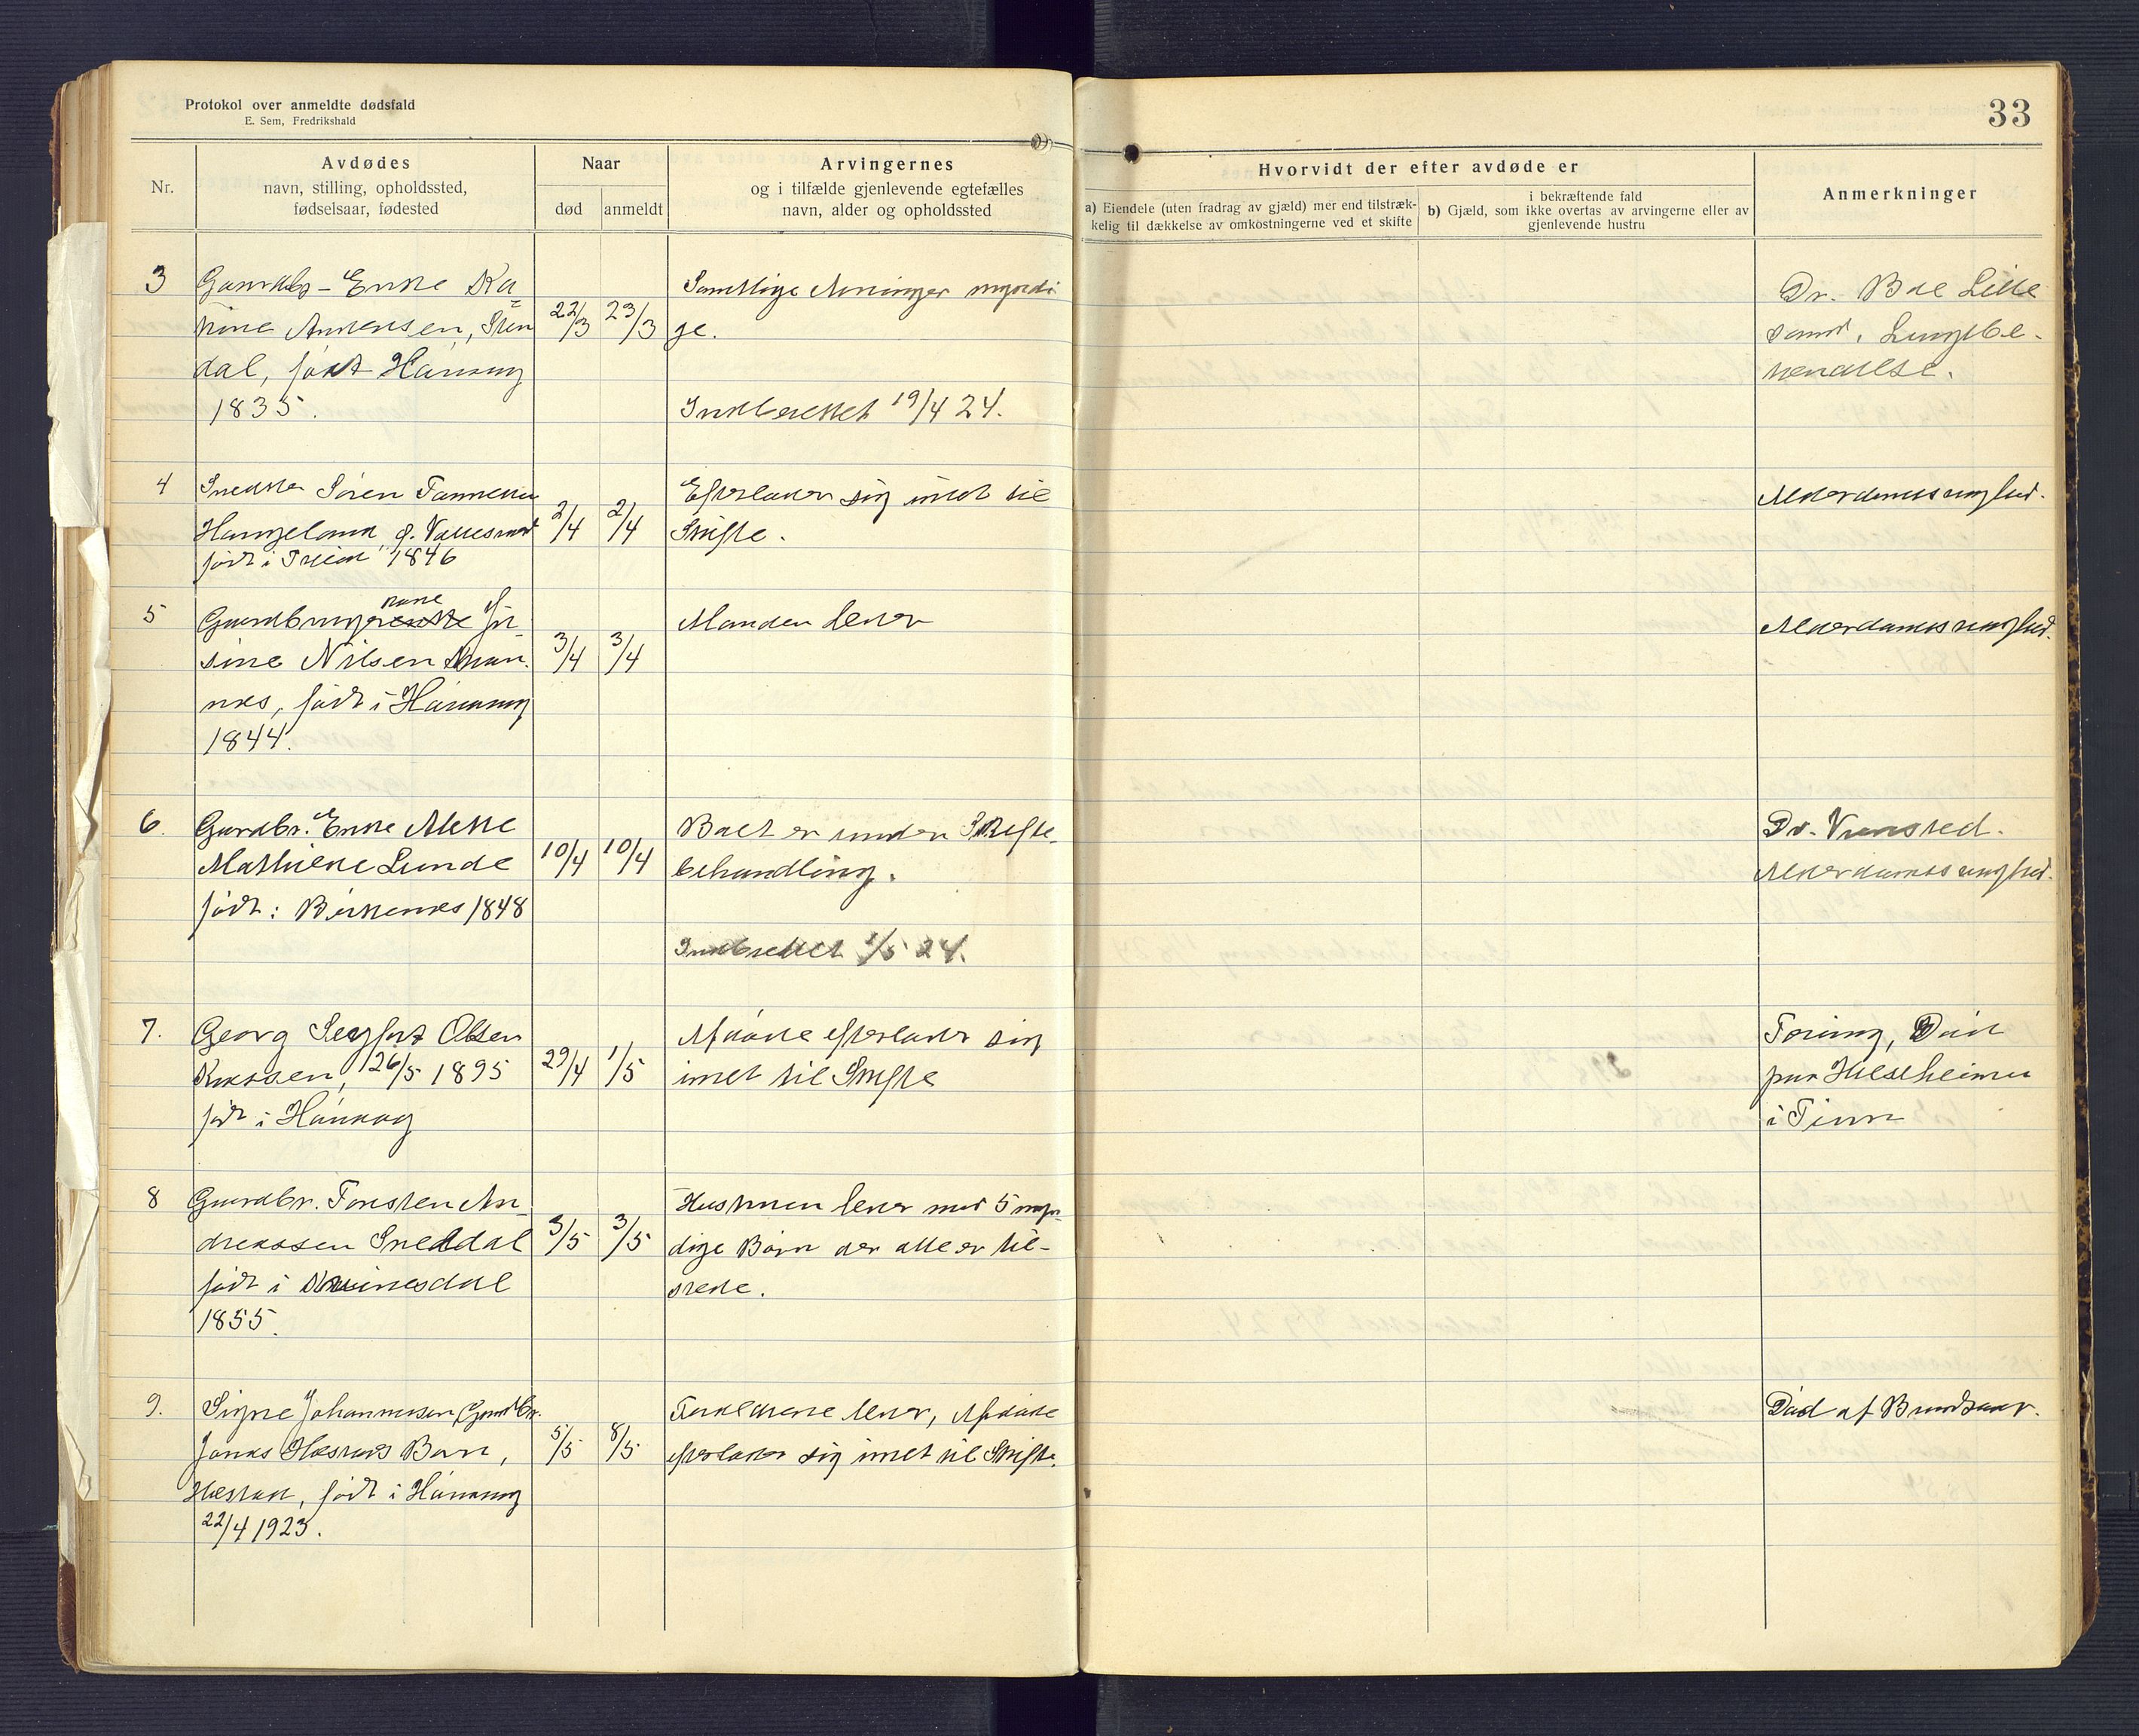 Protokol over anmeldte dødsfald
E. Sem, Fredrikshald
33
Nr.
Avdødes
navn, stilling, opholdssted,
fødselsaar, fødested
Naar
død
anmeldt
Arvingernes
og i tilfælde gjenlevende egtefælles
navn, alder og opholdssted
Hvorvidt der efter avdøde er
a) Eiendele (uten fradrag av gjæld) mer end tilstræk-
kelig til dækkelse av omkostningerne ved et skifte
i bekræftende fald
b) Gjæld, som ikke overtas av arvingerne eller av
gjenlevende hustru
Anmerkninger
3
Gaardbr-Enke Ka
trine Andersen,
dal, født Høivaag
1835.
22/3
23/3
Samtlige Arvinger myndi
ge.
Indberettet 19/4 24.
Dr. Boe Lille
sand. Lungebe-
tændelse.
4
Snedker Sören
Hangeland, p. Vallesverd
født i 1846
2/4
2/4
Efterlader sig intet til
Skifte.
Alderdomssvaghed.
5
Gaardbrugerkone Jör-
sine Nilsen Kvan-
nes, født i Høivaag
1844.
3/4
3/4
Manden lever
Alderdomssvaghed.
6.
Gaardbr. Enke
Mathilde Lunde
født i Birkenes 1848
10/4
10/4
Boet er under Skifte-
behandling.
Indberettet 1/5 24.
Dr.
Alderdomssvaghed.
7.
Georg Olsen
26/5 1895
født i Høivaag
29/4
1/5
Afdøde efterlader sig
intet til Skifte
Tæring, Död
paa
i Tinn
8
Gaardbr. Torsten An-
dreassen Sneddal
født i Kvinesdal
1855.
3/5
3/5
Hustruen lever med 5 myn-
dige Børn der alle er til-
stede.
9.
Signe Johannesen, Gaardbr.
Jonas Hæstads Barn,
Hæstad, født i Høivaag
22/4 1923.
5/5
8/5
Forældrene lever, Afdøde
efterlader sig intet til Skifte.
Död af Brandsaar.